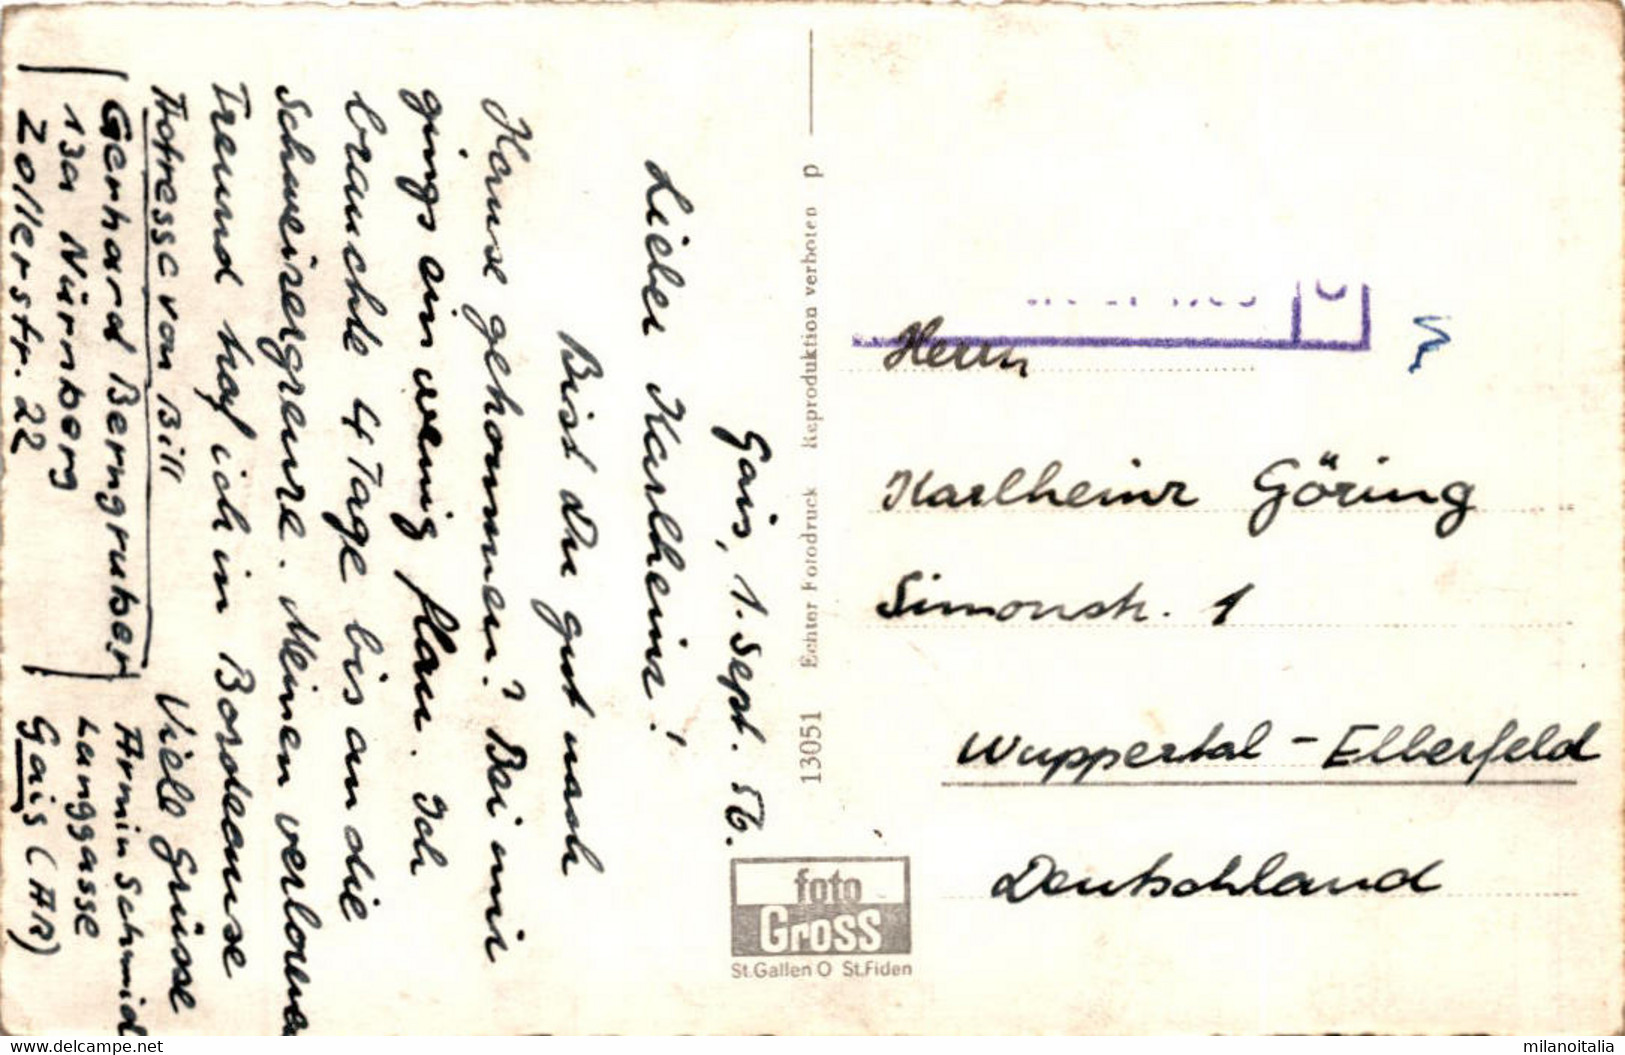 Gais, 1. Sept. 56.
Lieber Karlheinz!
Bist Du gut nach
Hause gekommen? Bei mir
gings ein wenig flau. Ich
brauchte 4 Tage bis an die
Schweizergrenze. Meinen verlorenen
Freund traf ich in Bordeause
Viele Grüsse
Armin Schmid
Langgasse
Gais (AR)
Adresse von Bill
Gerhard Berngruber
13a Nürnberg
Zollerstr. 22
13051 Echter Fotodruck Reproduktion verboten p
foto
Gross
St.Gallen O St.Fiden
Herrn
Karlheinz Göring
Simonstr. 1
Wuppertal - Elberfeld
Deutschland
www.delcampe.net
milanoitalia